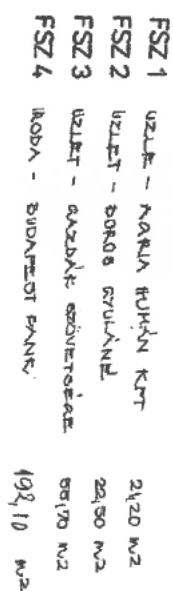 FSZ 1 ÜZLET - MARIA HUMÁN KFT 21,20 m2
FSZ 2 ÜZLET - BOROS GYULÁNÉ 22,50 m2
FSZ 3 ÜZLET - GAZDÁK SZÖVETSÉGE 55,70 m2
FSZ 4 IRODA - BUDAPEST BANK 192,10 m2